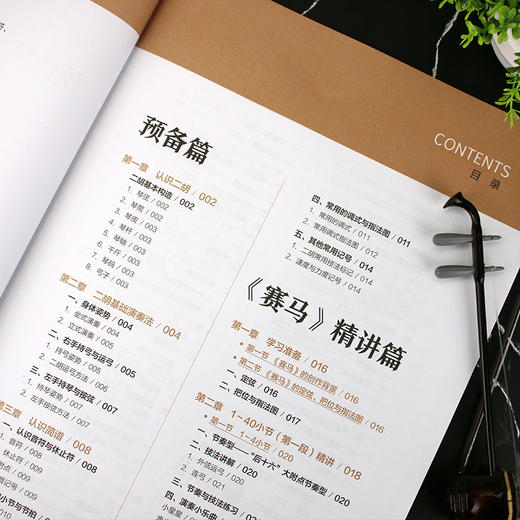 CONTENTS
目录
预备篇
第一章 认识二胡 / 002
二胡基本构造 / 002
1. 琴弦 / 002
2. 琴筒 / 002
3. 琴皮 / 003
4. 琴杆 / 003
5. 琴轴 / 003
6. 千斤 / 003
7. 琴码 / 003
8. 弓子 / 003
第二章 二胡基础演奏法 / 004
一、身体姿势 / 004
1. 坐式演奏 / 004
2. 立式演奏 / 004
二、右手持弓与运弓 / 005
1. 持弓姿势 / 005
2. 二胡运弓方法 / 005
三、左手持琴与按弦 / 006
1. 持琴姿势 / 007
2. 左手按弦方法 / 007
第三章 认识简谱 / 008
一、认识音符与休止符 / 008
1. 音符 / 008
休止符 / 008
附点 / 008
音记号 / 009
小节与节拍 / 009
四、常用的调式与指法图 / 011
1. 常用的调式 / 011
2. 常用调式指法图 / 012
五、其他常用记号 / 014
1. 二胡常用技法标记 / 014
2. 速度与力度记号 / 014
《赛马》精讲篇
第一章 学习准备 / 016
• 第一节 《赛马》的创作背景 / 016
• 第二节 《赛马》的定弦、把位与指法图 / 016
一、定弦 / 016
二、把位与指法图 / 016
第二章 1~40小节(第一段)精讲 / 018
• 第一节 1~4小节 / 020
一、节奏型——“后十六”大附点节奏型 / 020
二、技法讲解 / 020
1. 外弦运弓 / 020
2. 连弓 / 021
三、节奏与技法练习 /
四、演奏小乐曲
小星星